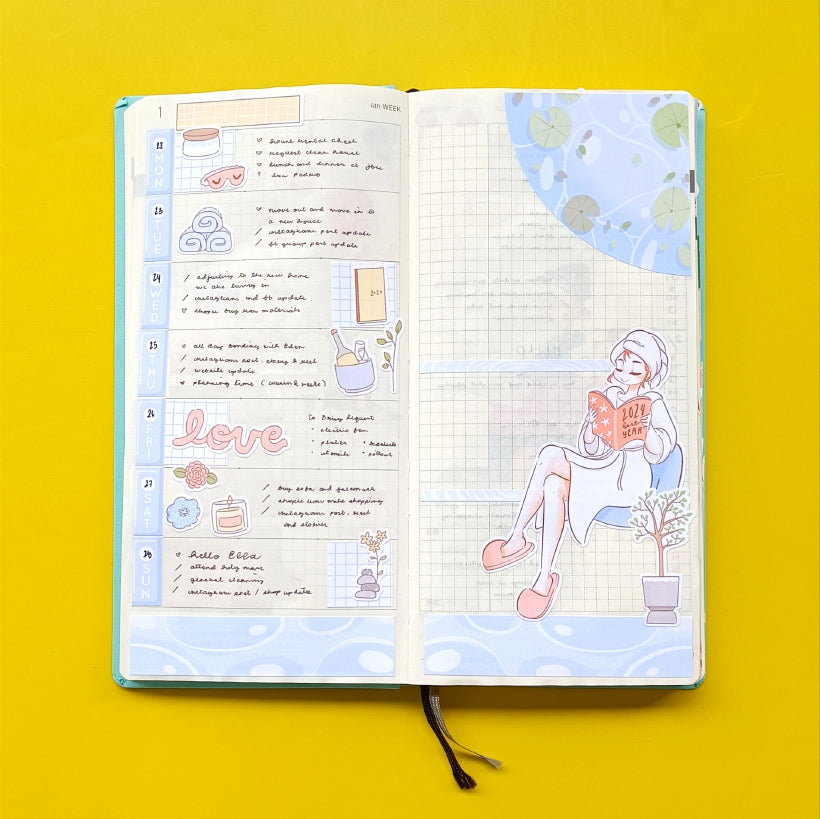 1
4th WEEK
22
MON
house rental check
request clean house
lunch and dinner at
San Pedro
23
TUE
move out and move in to
a new house
instagram post update
fb group post update
24
WED
adjusting to the new home
we are living in
instagram and fb update
choose materials
2024
25
THU
all day bonding with Eden
instagram post, story & reel
website update
planning time
26
FRI
love
to Bring Request
electric fan
plates
utensils
27
SAT
buy sofa and
shopee live mate shopping
instagram post, reel
and stories
28
SUN
hello Ella
attend holy mass
general cleaning
instagram post / shop update
2024
best
YEAR